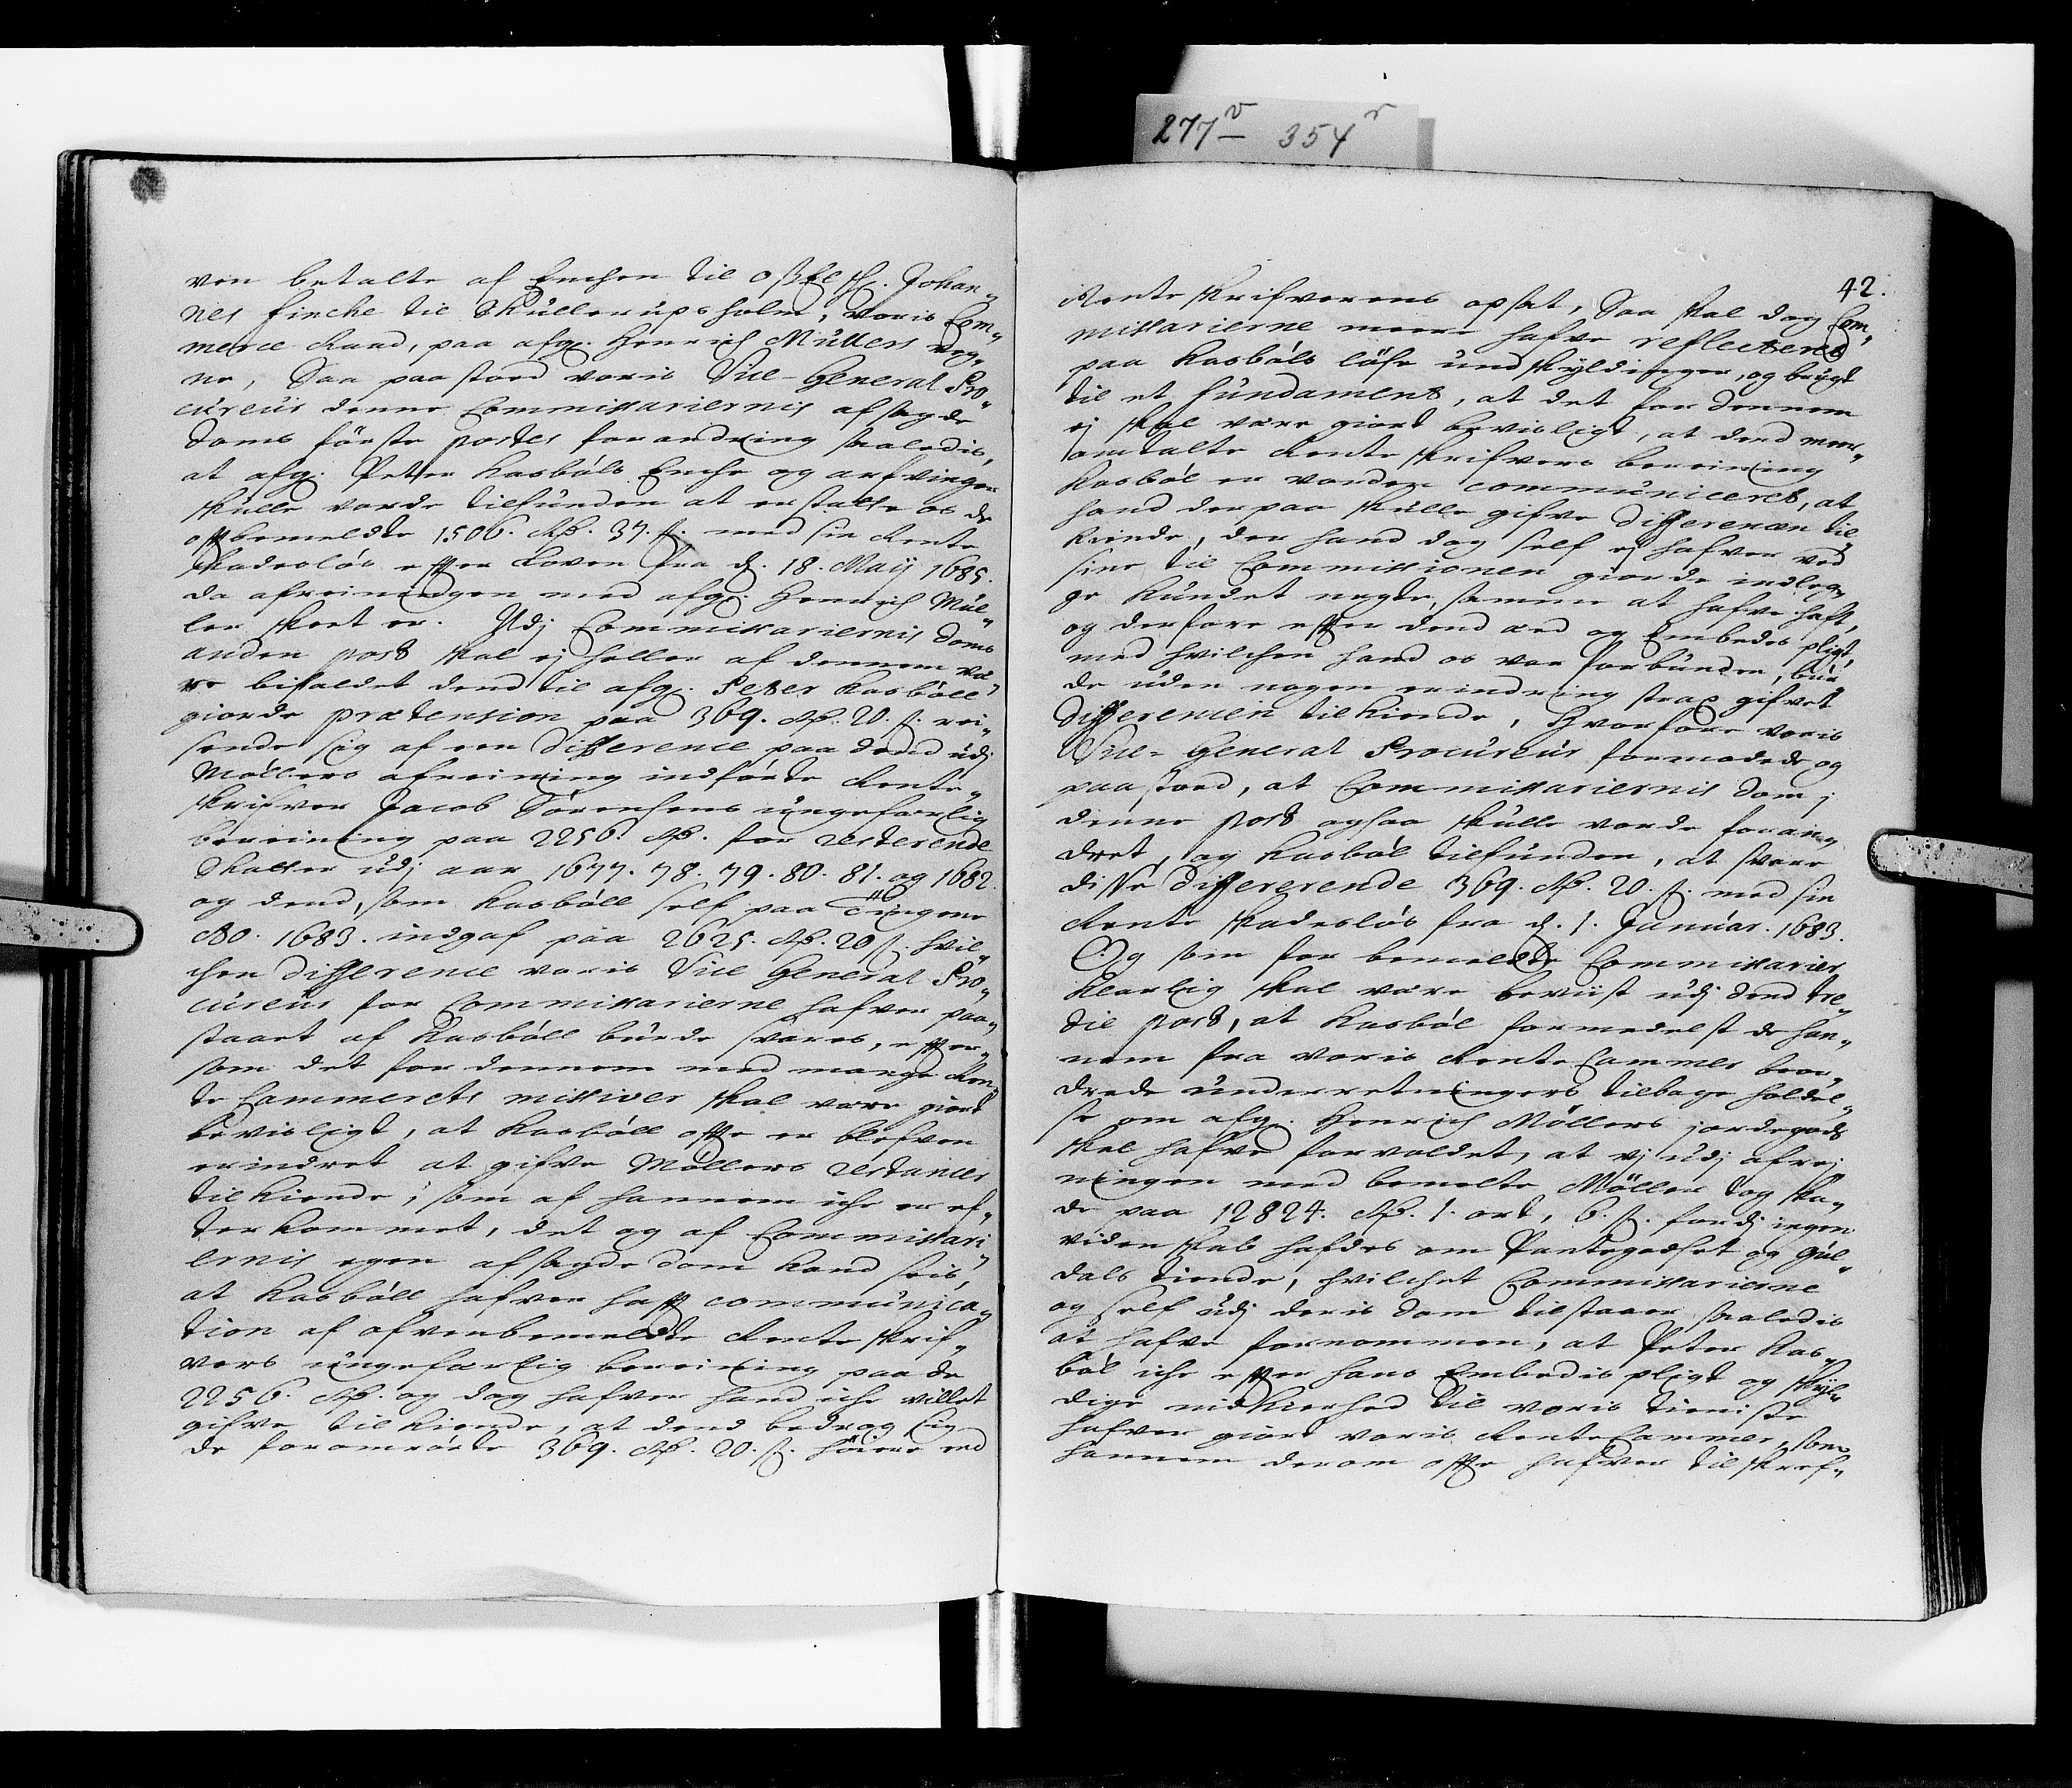 277v – 354r
ven betalte af Enchen til Oß Elskl. Johan„
nes Finche til Skullerupsholm, voris Com„
merce Raad, paa afg. Henrich Müllers veg„
ne, Saa paastoed voris Vice-General Pro„
cureur denne Commissariernis afsagde
doms förste postes forandring saaledis,
at afg. Peter Kasböls Enche og arfvinger
skulle vorde tilfunden at erstatte os de
oftbemeldte 1506. Rd. 37. s. med sin Rente
skadeslös efter Loven fra d. 18. Maij 1685.
da afreiningen med afg. Henrich Mül„
ler skeet er. Udj Commissariernis doms
anden post skal ej heller af dennem væ„
re bifaldet dend til afg. Peter Kasböll
giorde prætension paa 369. Rd. 20. s. rei„
sende sig af een difference paa dend udj
Möllers afreining indförte Rente„
skrifver Jacob Sörensens ungefærlig
bereining paa 2256. Rd. for resterende
Skatter udj aar 1677. 78. 79. 80. 81. og 1682.
og dend, som Kasböll self paa Tingene
Ao. 1683. indgaf paa 2625. Rd. 20 s. hvil„
chen difference voris Vice General Pro„
cureur for Commissarierne hafver paa„
staaet af Kasböll burde svares, efter„
som det for dennem med mange Ren„
te Cammerets missiver skal være giort
bevisligt, at Kasböll ofte er blefven
erindret at gifve Möllers restancer
tilkiende, som af hannem iche er ef„
terkommet, det og af Commissari„
ernis egen afsagde dom kand seis,
at Kasböll hafver haft communica„
tion af ofvenbemeldte Rente skrif„
vers ungefærlig bereining paa de
2256. Rd. og dog hafver hand iche villet
gifve tilkiende, at dend bedrog sig
de foromrörte 369. Rd. 20. s. höiere end
42.
Rente skrifverens opsat, Saa skal dog Com„
missarierne meere hafve reflecteret
paa Kasböls löse undskyldinger, og brugt
til et fundament, at det for dennem
ej skal være giort bevisligt, at dend meer„
omtalte Rente skrifvers bereining
Kasböl er vorden communiceret, at
hand derpaa skulle gifve differencen til„
kiende, der hand dog self ej hafver ved
sine til Commissionen giorde indleg„
ge kundet negte, samme at hafve haft,
og derfore efter dend æd og Embedes pligt,
med hvilchen hand os var forbunden, bur„
de uden nogen erindring strax gifvet
differencen tilkiende, Hvorfore voris
Vice-General Procureur formodede og
paastoed, at Commissariernis dom j
denne post ogsaa skulle vorde foran„
dret, og Kasböl tilfunden, at svare
disse differerende 369. Rd. 20. s. med sin
Rente skadeslös fra d. 1. Januar. 1683.
Og som for bemeldte Commissarier
klarlig skal være beviist udj dend tre„
die post, at Kasböl formedelst de han„
nem fra voris Rente Cammer beor„
drede underretningers tilbage holdel„
se om afg. Henrich Möllers jordegods
skal hafve forvoldet, at vj udj afrej
ningen med bemelte Möller tog ska„
de paa 12824. Rd. 1. ort, 6. s. fordj ingen
videnskab hafdes om Pantegodset og Gul„
dals tiende, hvilchet Commissarierne
og self udj deris dom tilstaaer saaledis
at hafve fornommen, at Peter Kas„
böl iche efter hans Embedis pligt og skyl„
dige nidkierhed til voris tieniste
hafver giort voris Rente Cammer, som
hannem derom ofte hafver tilskref„